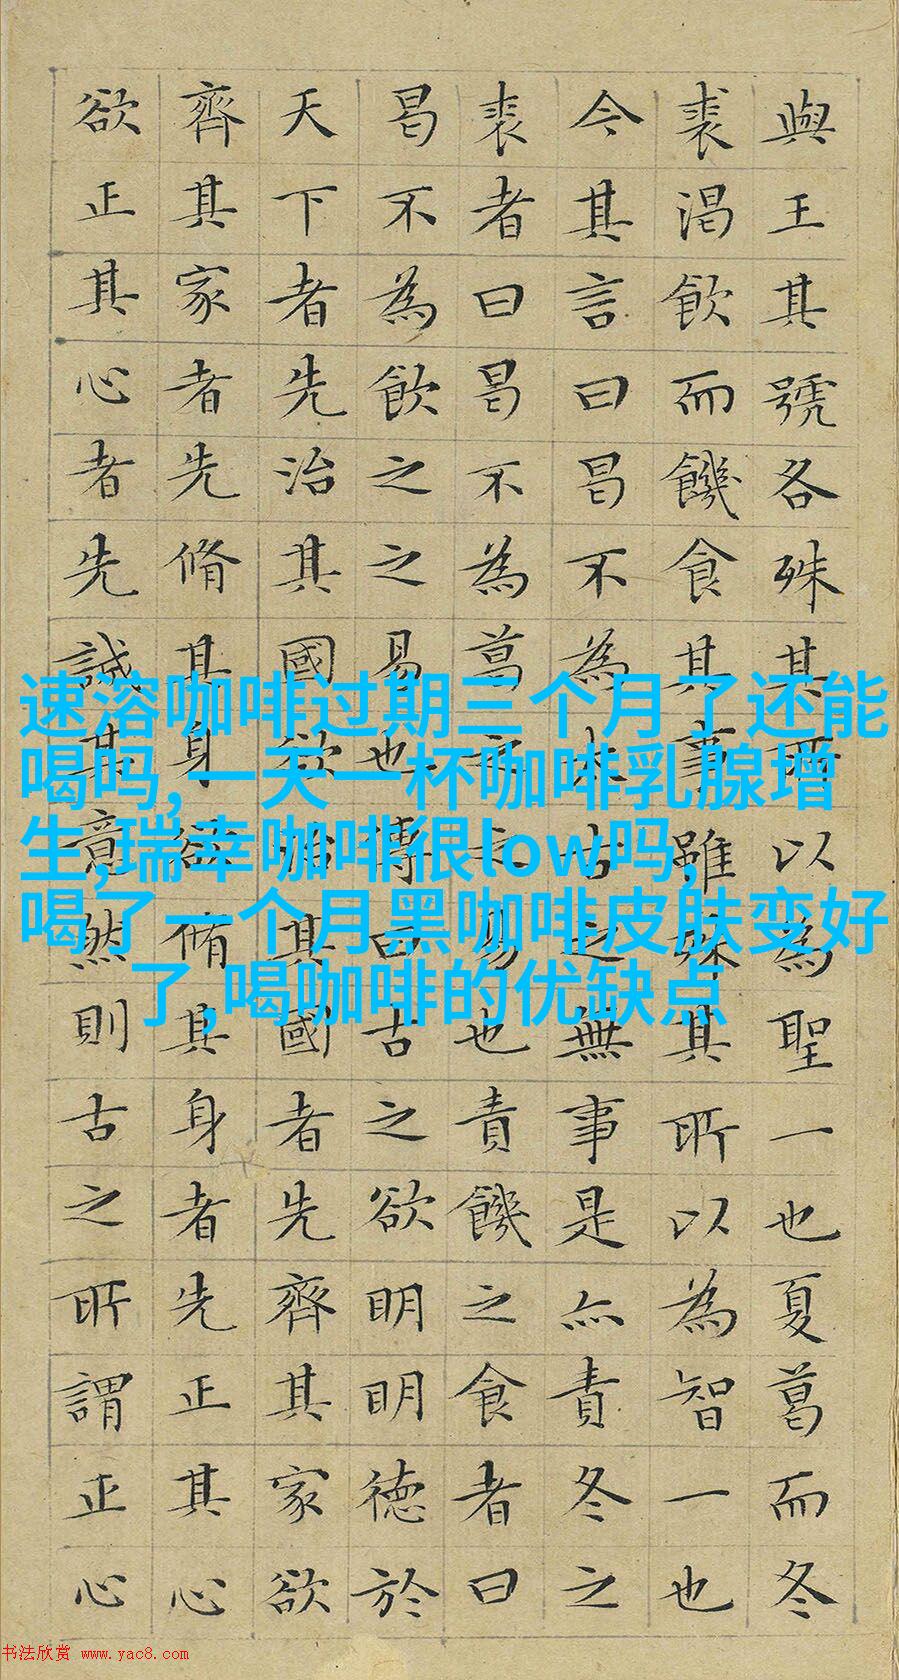 與王其號各殊其所以為聖一也夏葛而冬
裘渴飲而饑食其事雖殊其所以為智一也
今其言曰曷不為太古之無事是亦責冬之
裘者曰曷不為葛之之易也責饑之食者曰
曷不為飲之之易也傳曰古之欲明明德於
天下者先治其國欲治其國者先齊其家欲
齊其家者先脩其身欲脩其身者先正其心
欲正其心者先誠其意然則古之所謂正心
速溶咖啡过期三个月了还能
喝吗,一天一杯咖啡乳腺增
生,瑞幸咖啡很low吗,
喝了一个月黑咖啡皮肤变好
了,喝咖啡的优缺点
书法欣赏 www.yac8.com